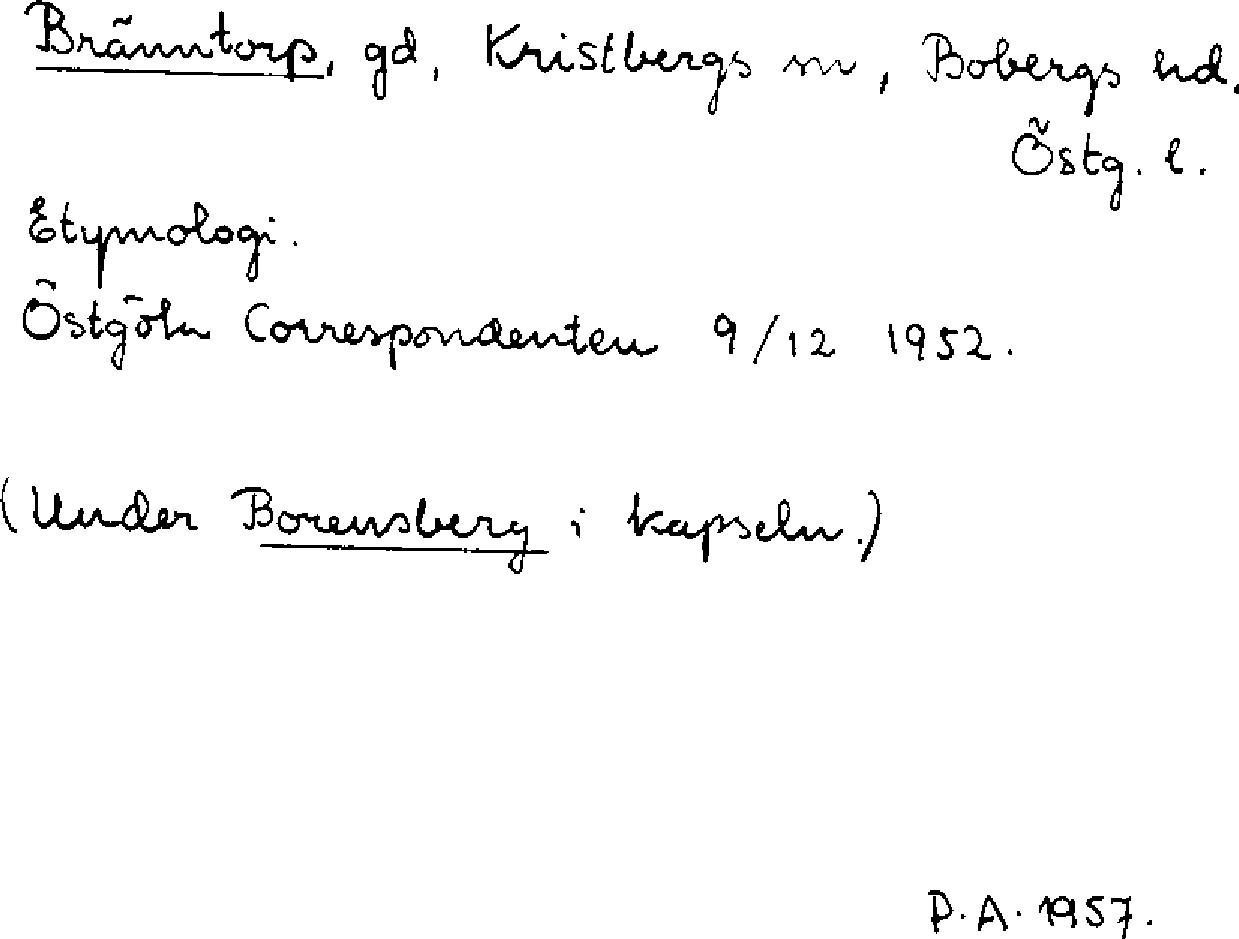 Bränntorp, gd, Kristbergs sn, Bobergs hd.
Östg. l.
Etymologi.
Östgöten Correspondenten 9/12 1952.
(Under Borensberg i kapseln.)
P.A. 1957.